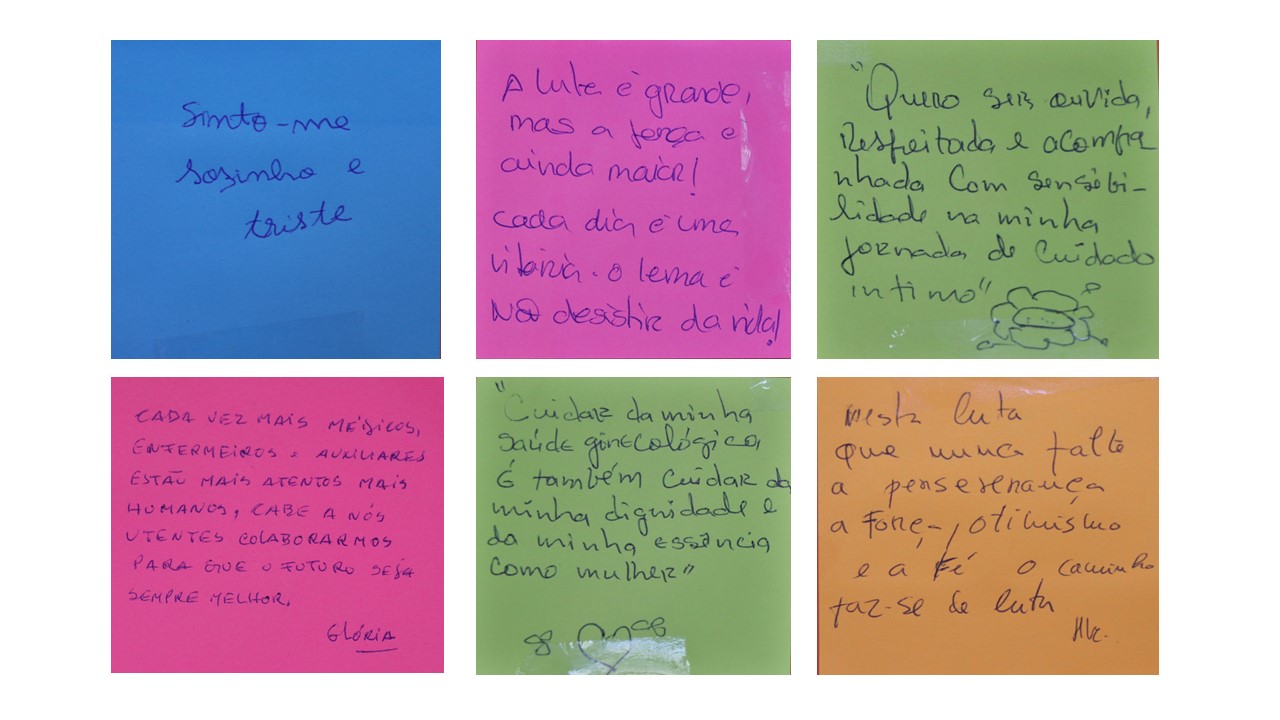 Sinto-me
sozinho e
triste
A luta é grande,
mas a força é
ainda maior!
cada dia é uma
vitória. O lema é
Não desistir da vida!
"Quero ser ouvida,
Respeitada e acompa
nhada Com sensibi-
lidade na minha
jornada de Cuidado
intimo"
CADA VEZ MAIS MÉDICOS,
ENFERMEIROS E AUXILIARES
ESTÃO MAIS ATENTOS MAIS
HUMANOS, CABE A NÓS
UTENTES COLABORARMOS
PARA QUE O FUTURO SEJA
SEMPRE MELHOR.
GLÓRIA
"Cuidar da minha
saúde ginecológica,
É também Cuidar da
minha dignidade e
da minha essência
como mulher"
Nesta luta
que nunca falte
a perseverança
a Força, otimismo
e a Fé o caminho
faz-se de luta